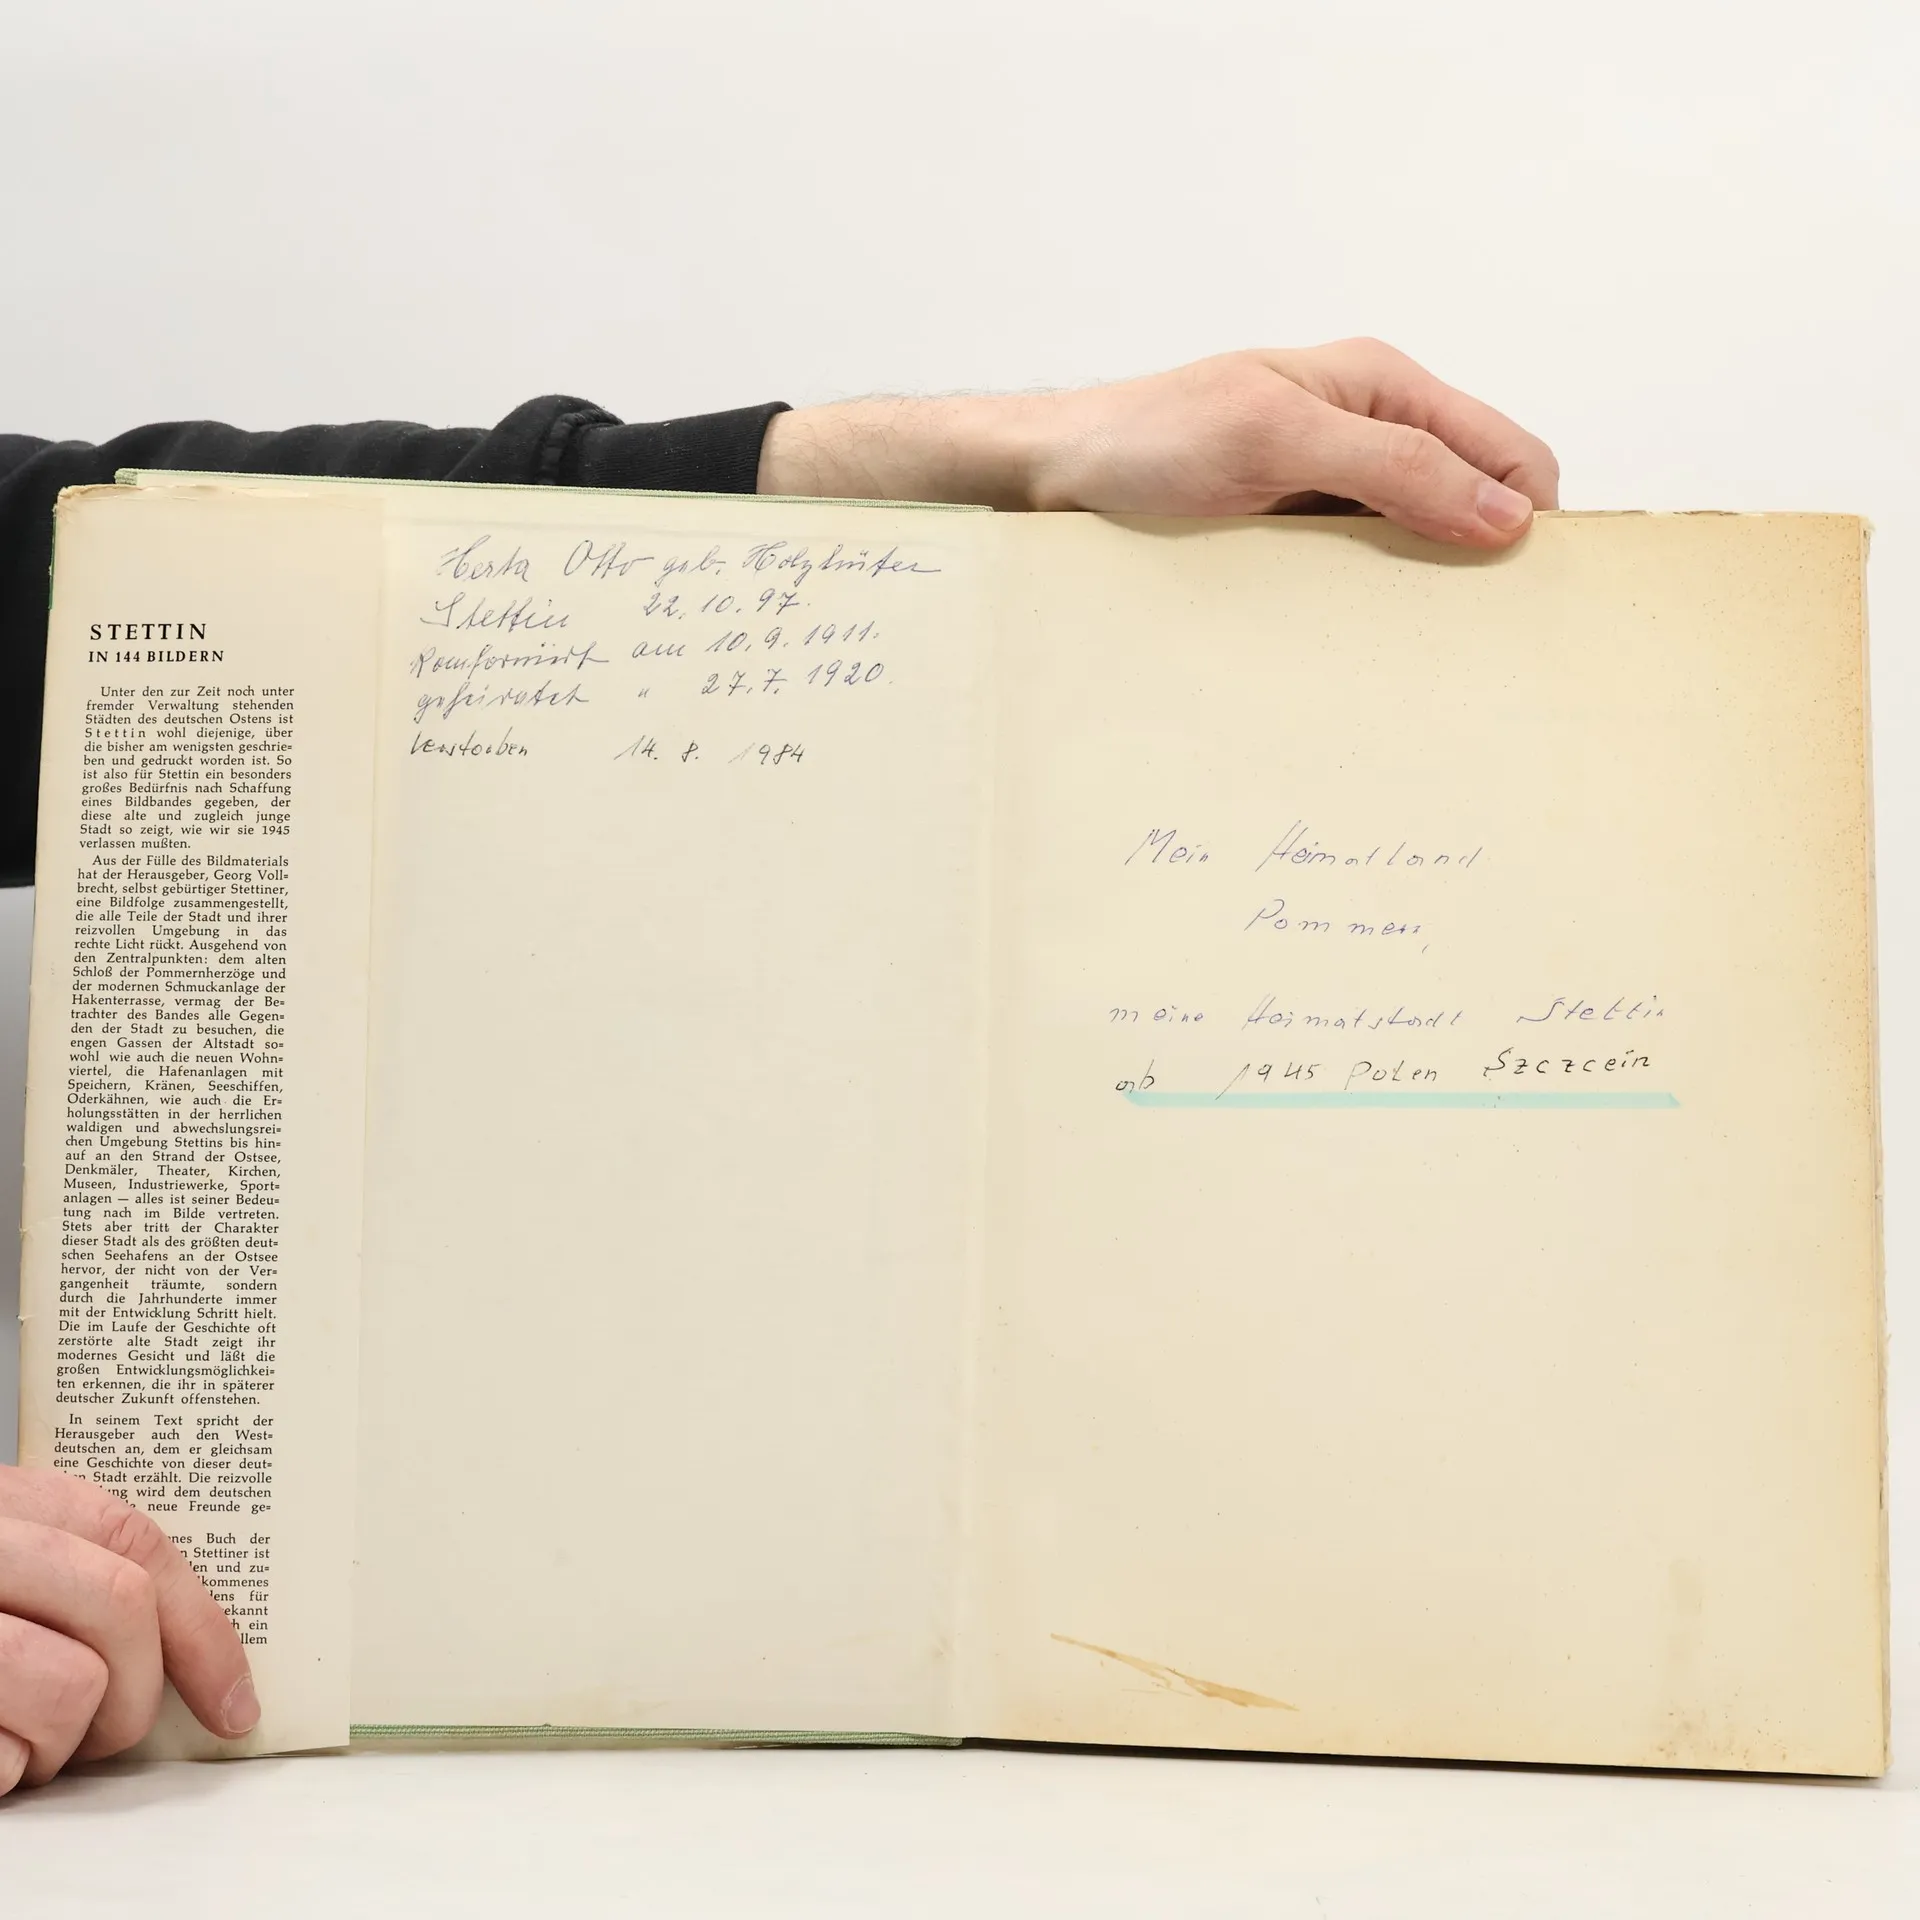 STETTIN
IN 144 BILDERN
Unter den zur Zeit noch unter
fremder Verwaltung stehenden
Städten des deutschen Ostens ist
Stettin wohl diejenige, über
die bisher am wenigsten geschrie=
ben und gedruckt worden ist. So
ist also für Stettin ein besonders
großes Bedürfnis nach Schaffung
eines Bildbandes gegeben, der
diese alte und zugleich junge
Stadt so zeigt, wie wir sie 1945
verlassen mußten.
Aus der Fülle des Bildmaterials
hat der Herausgeber, Georg Voll=
brecht, selbst gebürtiger Stettiner,
eine Bildfolge zusammengestellt,
die alle Teile der Stadt und ihrer
reizvollen Umgebung in das
rechte Licht rückt. Ausgehend von
den Zentralpunkten: dem alten
Schloß der Pommernherzöge und
der modernen Schmuckanlage der
Hakenterrasse, vermag der Be=
trachter des Bandes alle Gegen=
den der Stadt zu besuchen, die
engen Gassen der Altstadt so=
wohl wie auch die neuen Wohn=
viertel, die Hafenanlagen mit
Speichern, Kränen, Seeschiffen,
Oderkähnen, wie auch die Er=
holungsstätten in der herrlichen
waldigen und abwechslungsrei=
chen Umgebung Stettins bis hin=
auf an den Strand der Ostsee,
Denkmäler, Theater, Kirchen,
Museen, Industriewerke, Sport=
anlagen — alles ist seiner Bedeu=
tung nach im Bilde vertreten.
Stets aber tritt der Charakter
dieser Stadt als des größten deut=
schen Seehafens an der Ostsee
hervor, der nicht von der Ver=
gangenheit träumte, sondern
durch die Jahrhunderte immer
mit der Entwicklung Schritt hielt.
Die im Laufe der Geschichte oft
zerstörte alte Stadt zeigt ihr
modernes Gesicht und läßt die
großen Entwicklungsmöglichkei=
ten erkennen, die ihr in späterer
deutscher Zukunft offenstehen.
In seinem Text spricht der
Herausgeber auch den West=
deutschen an, dem er gleichsam
eine Geschichte von dieser deut=
Stadt erzählt. Die reizvolle
wird dem deutschen
neue Freunde ge=
Buch der
Stettiner ist
und zu=
für
ein
Herta Otto geb. Holzhüter
Stettin 22.10.97.
Komformiert am 10.9.1911.
geheiratet " 27.7.1920.
verstorben 14. 8. 1984
Mein Heimatland
Pommern,
meine Heimatstadt Stettin
ab 1945 Polen Szczcein